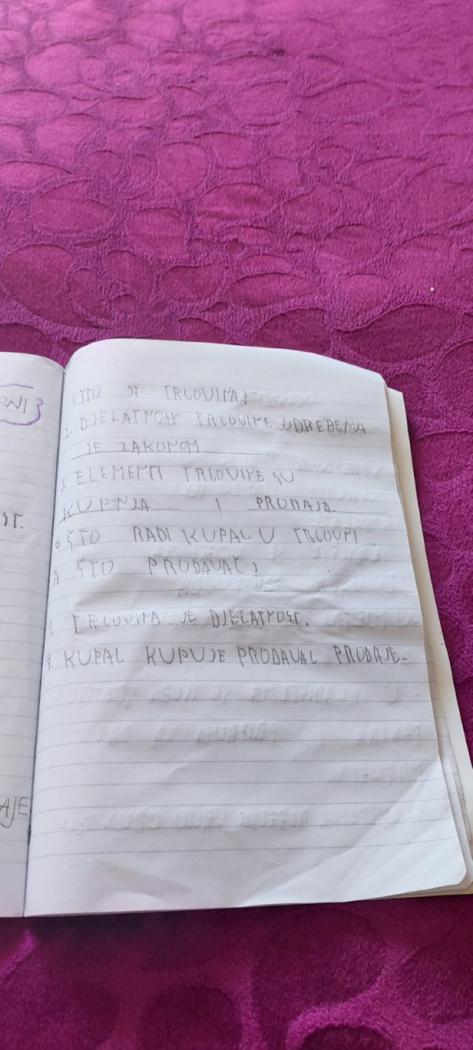 RNI
ST.
AJE
1. ŠTO JE TRGOVINA?
2. DJELATNOST TRGOVINE UDREĐENA
JE ZAKONOM
3. ELEMENTI TRGOVINE SU
KUPNJA I PRODAJA.
ŠTO RADI KUPAC U TRGOVINI
A ŠTO PRODAVAČ?
1. TRGOVINA JE DJELATNOST.
4. KUPAC KUPUJE PRODAVAC PRODAJE.